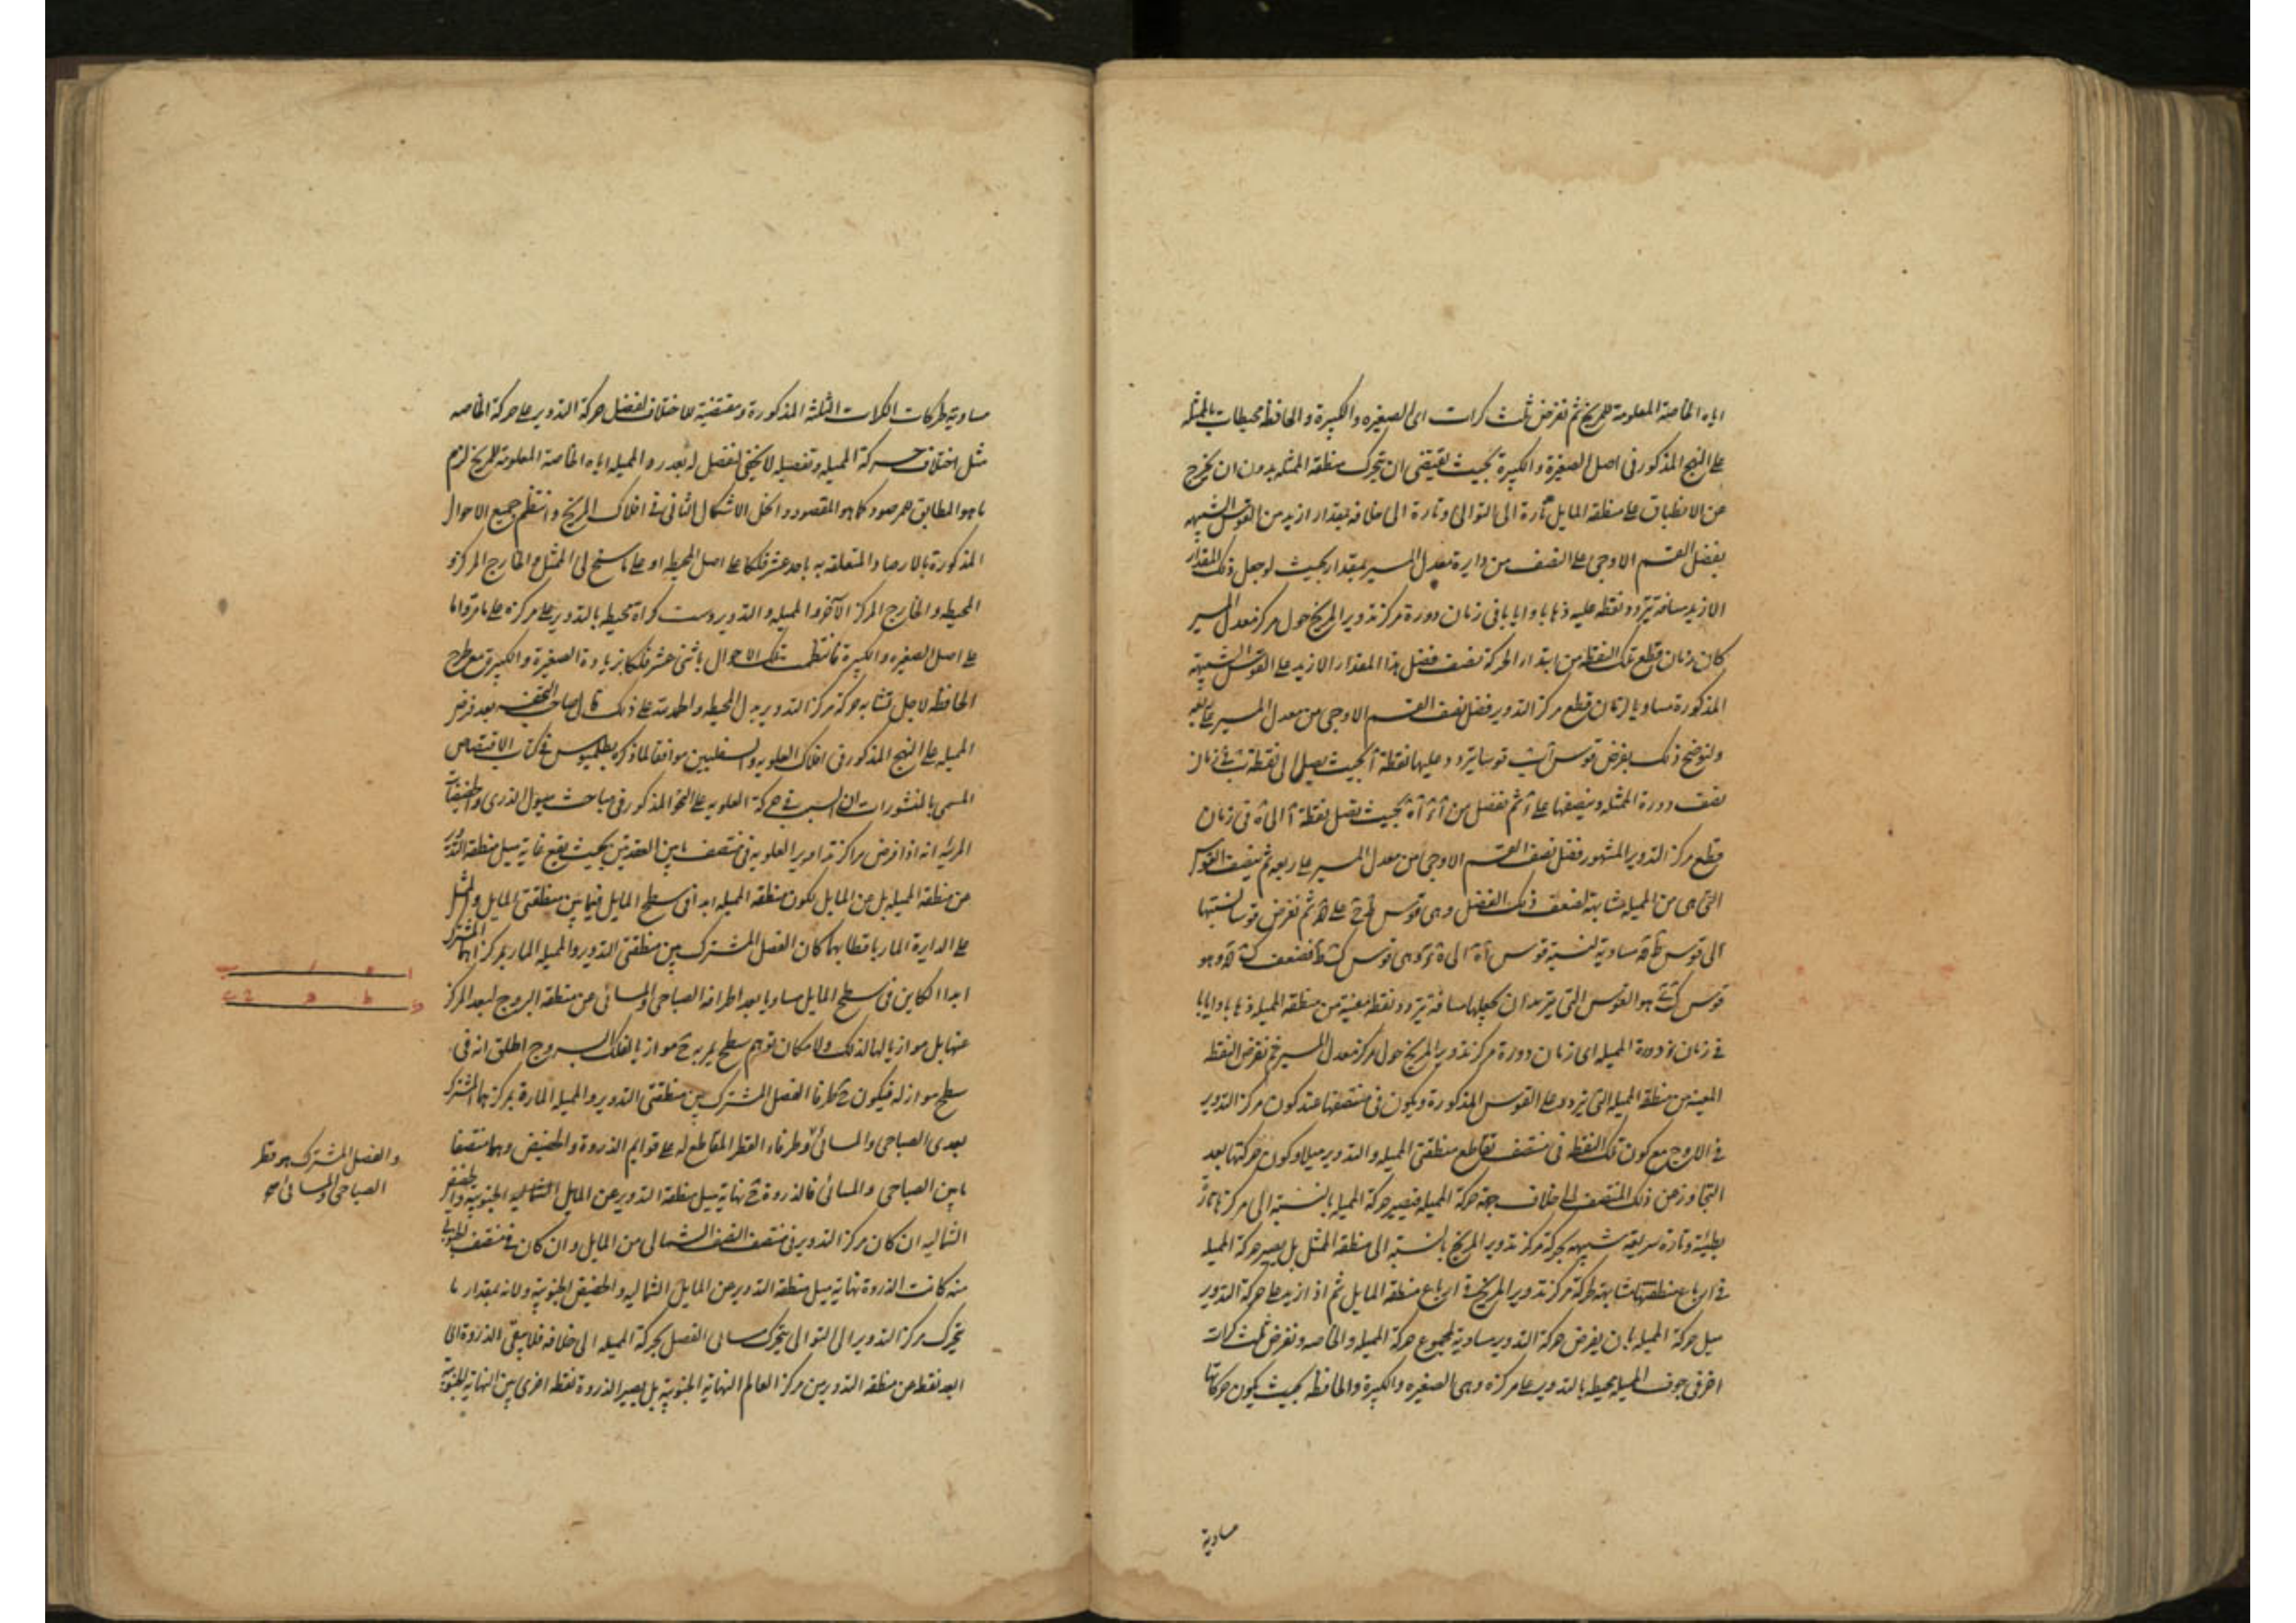 اياه الخاصة المعلومة للمريخ ثم نفرض ثلث كرات اى الصغيره والكبيرة والحافظه محيطات بالممثله
على النهج المذكور فى اصل الصغيرة والكبيرة بحيث يقتضى ان يتحرك منطقة الممثله بدون ان يخرج
عن الانطباق على منطقة المايل تارة الى التوالى وتارة الى خلافه بمقدار ازيد من القوس الشبيهه
بفضل القسم الاوجى على النصف من دايرة معدل المسير بمقدار بحيث لو جعل ذلك المقدار
الازيد مسافة يتردد نقطه عليه ذهابا وايابا فى زمان دورة مركز تدوير المريخ حول مركز معدل المسير
كان زمان قطع تلك النقطه من ابتداء الحركة نصف فضل هذا المقدار الازيد على القوس الشبيهة
المذكورة مساويا لزمان قطع مركز التدوير فضل نصف القسم الاوجى من معدل المسير على ربعه
ولنوضح ذلك بفرض قوس اب قوسا يتردد عليها نقطة ا بحيث يصل الى نقطة ب فى زمان
نصف دورة الممثله وننصفها على ثم نفصل من بحيث تصل نقطة ا الى ه فى زمان
قطع مركز التدوير المشهور فضل نصف القسم الاوجى من معدل المسير على ربعه ثم ننصف القوس
التى هى من المميله مشابهة لضعف ذلك الفضل وهى قوس على ثم نفرض قوسا نسبتها
الى قوس مساوية لنسبة قوس الى وهى قوس فضعف وهو
قوس هو القوس التى نريد ان نجعلها مسافة يتردد نقطه معينة من منطقة المميله ذهابا وايابا
فى زمان دورة المميله اى زمان دورة مركز تدوير المريخ حول مركز معدل المسير ثم نفرض النقطه
المعينه من منطقة المميله التى يتردد على القوس المذكورة ويكون فى منتصفها عند كون مركز التدوير
فى الاوج مع كون تلك النقطه فى منتصف تقاطع منطقتى المميله والتدوير ميلا وكون حركتها بعد
التجاوز عن ذلك المنتصف الى خلاف جهة حركة المميله فتصير حركة المميله بالنسبة الى مركزها تارة
بطيئة وتارة سريعة شبيهه بحركة مركز تدوير المريخ بالنسبة الى منطقة الممثل بل يصير حركة المميله
فى ارباع منطقتها مشابهة لحركة مركز تدوير المريخ فى ارباع منطقة المايل ثم اذا ازيد على حركة التدوير
مثل حركة المميله بان يفرض حركة التدوير مساوية لمجموع حركة المميله والخاصه ونفرض ثلث كرات
اخر فى جوف المميله محيطه بالتدوير على مركزه وهى الصغيره والكبيرة والحافظه بحيث يكون حركاتها
مساوية
مساوية لحركات الكرات الثلثة المذكورة ومقتضية للاختلاف لفضل حركة التدوير على حركة الخاصه
مثل اختلاف حركة المميله وتفصيله لا يخفى لفضل له بعد رد المميله اياه الخاصة المعلومة للمريخ لزم
ما هو المطابق للمرصود كما هو المقصود وانحل الاشكال الثانى فى افلاك المريخ وانتظم جميع الاحوال
المذكورة بالارصاد المتعلقه به باحد عشر فلكا على اصل المحيطه او على ما سنح لى الممثل والخارج المركز و
المحيطه والخارج المركز الآخر والمميله والتدوير وست كرات محيطه بالتدوير على مركزه على ما مر واما
على اصل الصغيره والكبيرة فانتظمت تلك الاحوال باثنى عشر فلكا بزيادة الصغيرة والكبيرة مع طرح
الحافظه لاجل تشابه حركة مركز التدوير بدل المحيطه والحمد لله على ذلك قال صاحب التحفه بعد فرض
المميله على النهج المذكور فى افلاك العلويه والسفليين موافقا لما ذكره بطلميوس فى كتاب الاقتصاص
المسمى بالمنشورات ان السبب فى حركة العلويه على النحو المذكور فى مباحث ميول الذرى والحضيضات
المرئيه انه اذا فرض مراكز تداوير العلويه فى منتصف ما بين العقدتين بحيث يقع غاية ميل منطقة التدوير
عن منطقة المميله بل عن المايل لكون منطقة المميله ابدا فى سطح المايل فيما بين منطقتى المايل والممثل
على الدايرة المارة باقطابهما كان الفصل المشترك بين منطقتى التدوير والمميله المار بمركزهما المشترك
ابدا الكاين فى سطح المايل مساويا بعد اطرافه الصباحى والمسائى عن منطقة البروج لبعد المركز
عنها بل موازيا لها لذلك ولامكان توهم سطح يمر به ح موازيا لفلك البروج اطلق انه فى
سطح مواز له فيكون ح طرفا الفصل المشترك بين منطقتى التدوير والمميله المارة بمركزهما المشترك
بعدى الصباحى والمسائى وطرفاء القطر المقاطع له على قوايم الذروة والحضيض وهما منتصفا
ما بين الصباحى والمسائى فالذروة ح نهاية ميل منطقة التدوير عن المايل الجنوبية والحضيض
الشماليه ان كان مركز التدوير فى منتصف النصف الشمالى من المايل وان كان فى منتصف الجنوبى
منه كانت الذروة نهاية ميل منطقة التدوير عن المايل الشماليه والحضيض الجنوبية ولانه بمقدار ما
يتحرك مركز التدوير الى التوالى يتحرك مسائى الفصل بحركة المميله الى خلافه فلا يبقى الذروة اى
ابعد نقطه من منطقة التدوير من مركز العالم النهاية الجنوبية بل يصير الذروة نقطه اخرى بين النهاية الجنوبية
والفصل المشترك هو قطر
الصباحى والمسائى صح